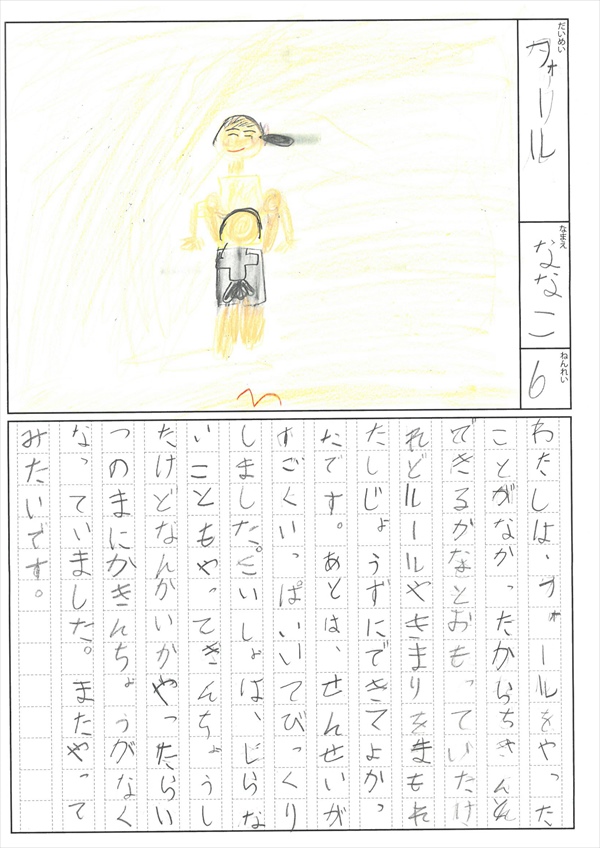 だいめい
フォーリル
なまえ
ななこ
ねんれい
6
わたしは、フォールをやった
ことがなかったからちきんと
できるかなとおもっていたけ
れどルールやきまりをまもれ
たしじょうずにできてよかっ
たです。あとは、せんせいが
すごくいっぱいいてびっくり
しました。さいしょは、しらな
いこともやってきんちょうし
たけどなんかいかやったらい
つのまにかきんちょうがなく
なっていました。またやって
みたいです。